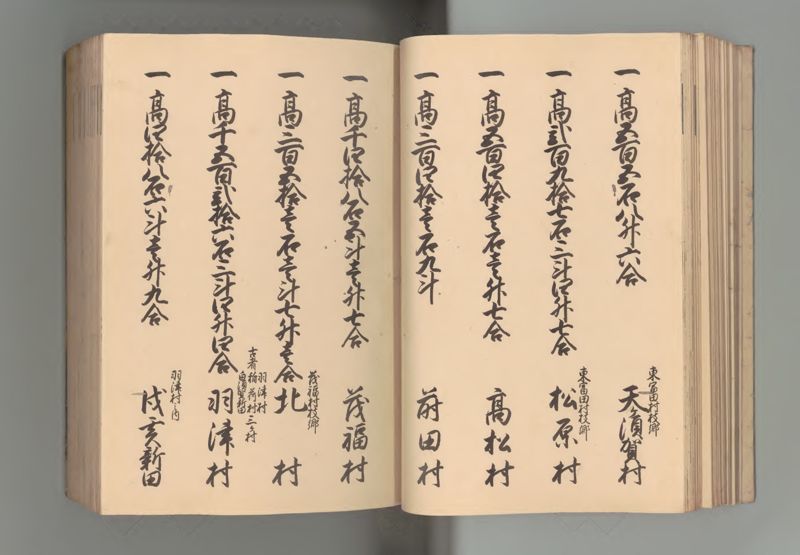 一高五百五石八升六合
東富田村枝郷
天須賀村
一高弐百九拾七石三斗四升七合
東富田村枝郷
松原村
一高五百四拾壱石壱升七合
高松村
一高三百四拾壱石九斗
蒔田村
一高千四拾八石五斗壱升七合
茂福村
一高三百五拾壱石壱斗七升壱合
茂福村枝郷
北村
一高千五百弐拾六石三斗四升四合
羽津村
古者稲荷村三ヶ村
羽津村
一高四拾八石六斗壱升九合
羽津村之内
戌亥新田